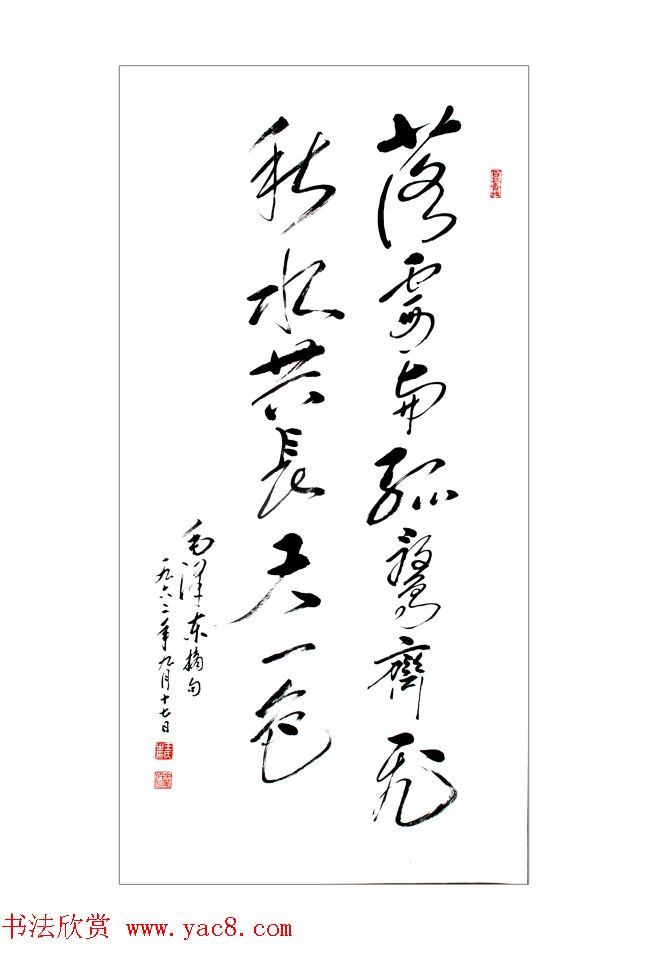 落霞与孤鹜齊飞
秋水共長天一色
毛泽东摘句
一九六二年九月十七日
书法欣赏 www.yac8.com